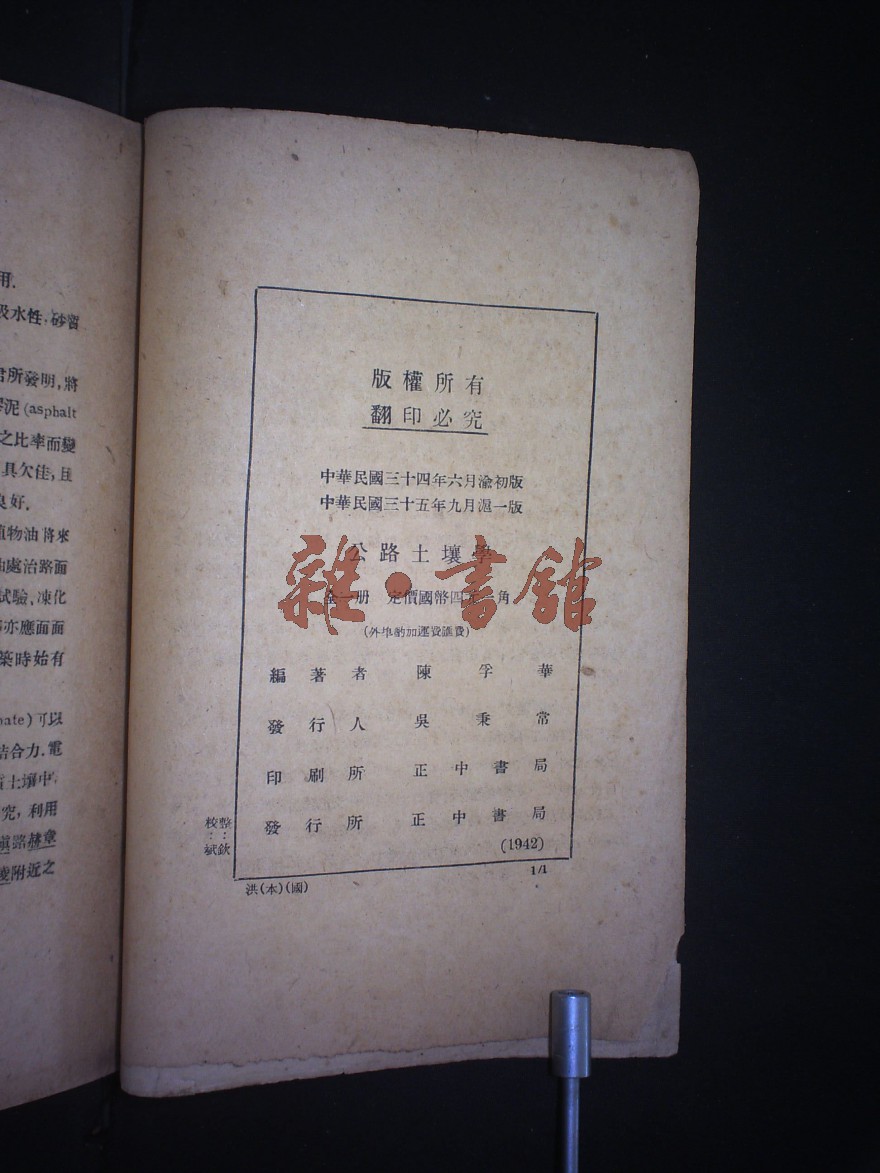 用.
吸水性,砂質
君所發明,將
泥(asphalt
之比率而變
具欠佳,且
良好.
植物油將來
油處治路面
試驗、凍化
亦應面面
築時始有
nate)可以
結合力.電
土壤中,
究,利用
路赫章
附近之
版權所有
翻印必究
中華民國三十四年六月渝初版
中華民國三十五年九月滬一版
公路土壤學
全一册 定價國幣四元一角
(外埠酌加運費滙費)
編著者 陳孚華
發行人 吳秉常
印刷所 正中書局
發行所 正中書局
(1942)
整:欽
校:斌
洪(本)(國)
1/1
雜·書館